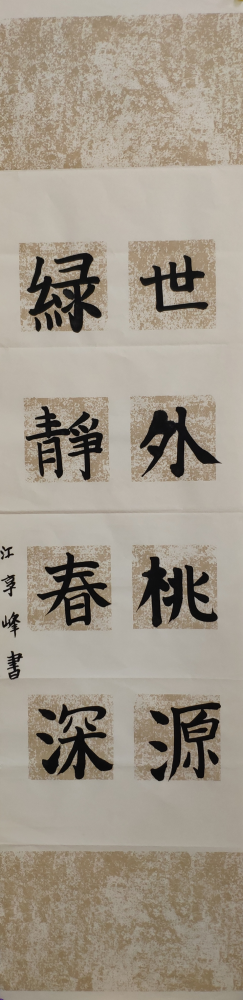 世外桃源
綠靜春深
江享峰書